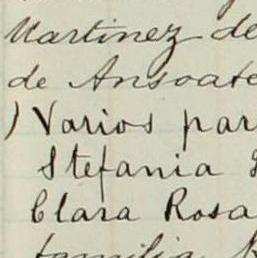 Martinez de
de Ansoate
) Varios par
Stefania
Clara Rosa
familia